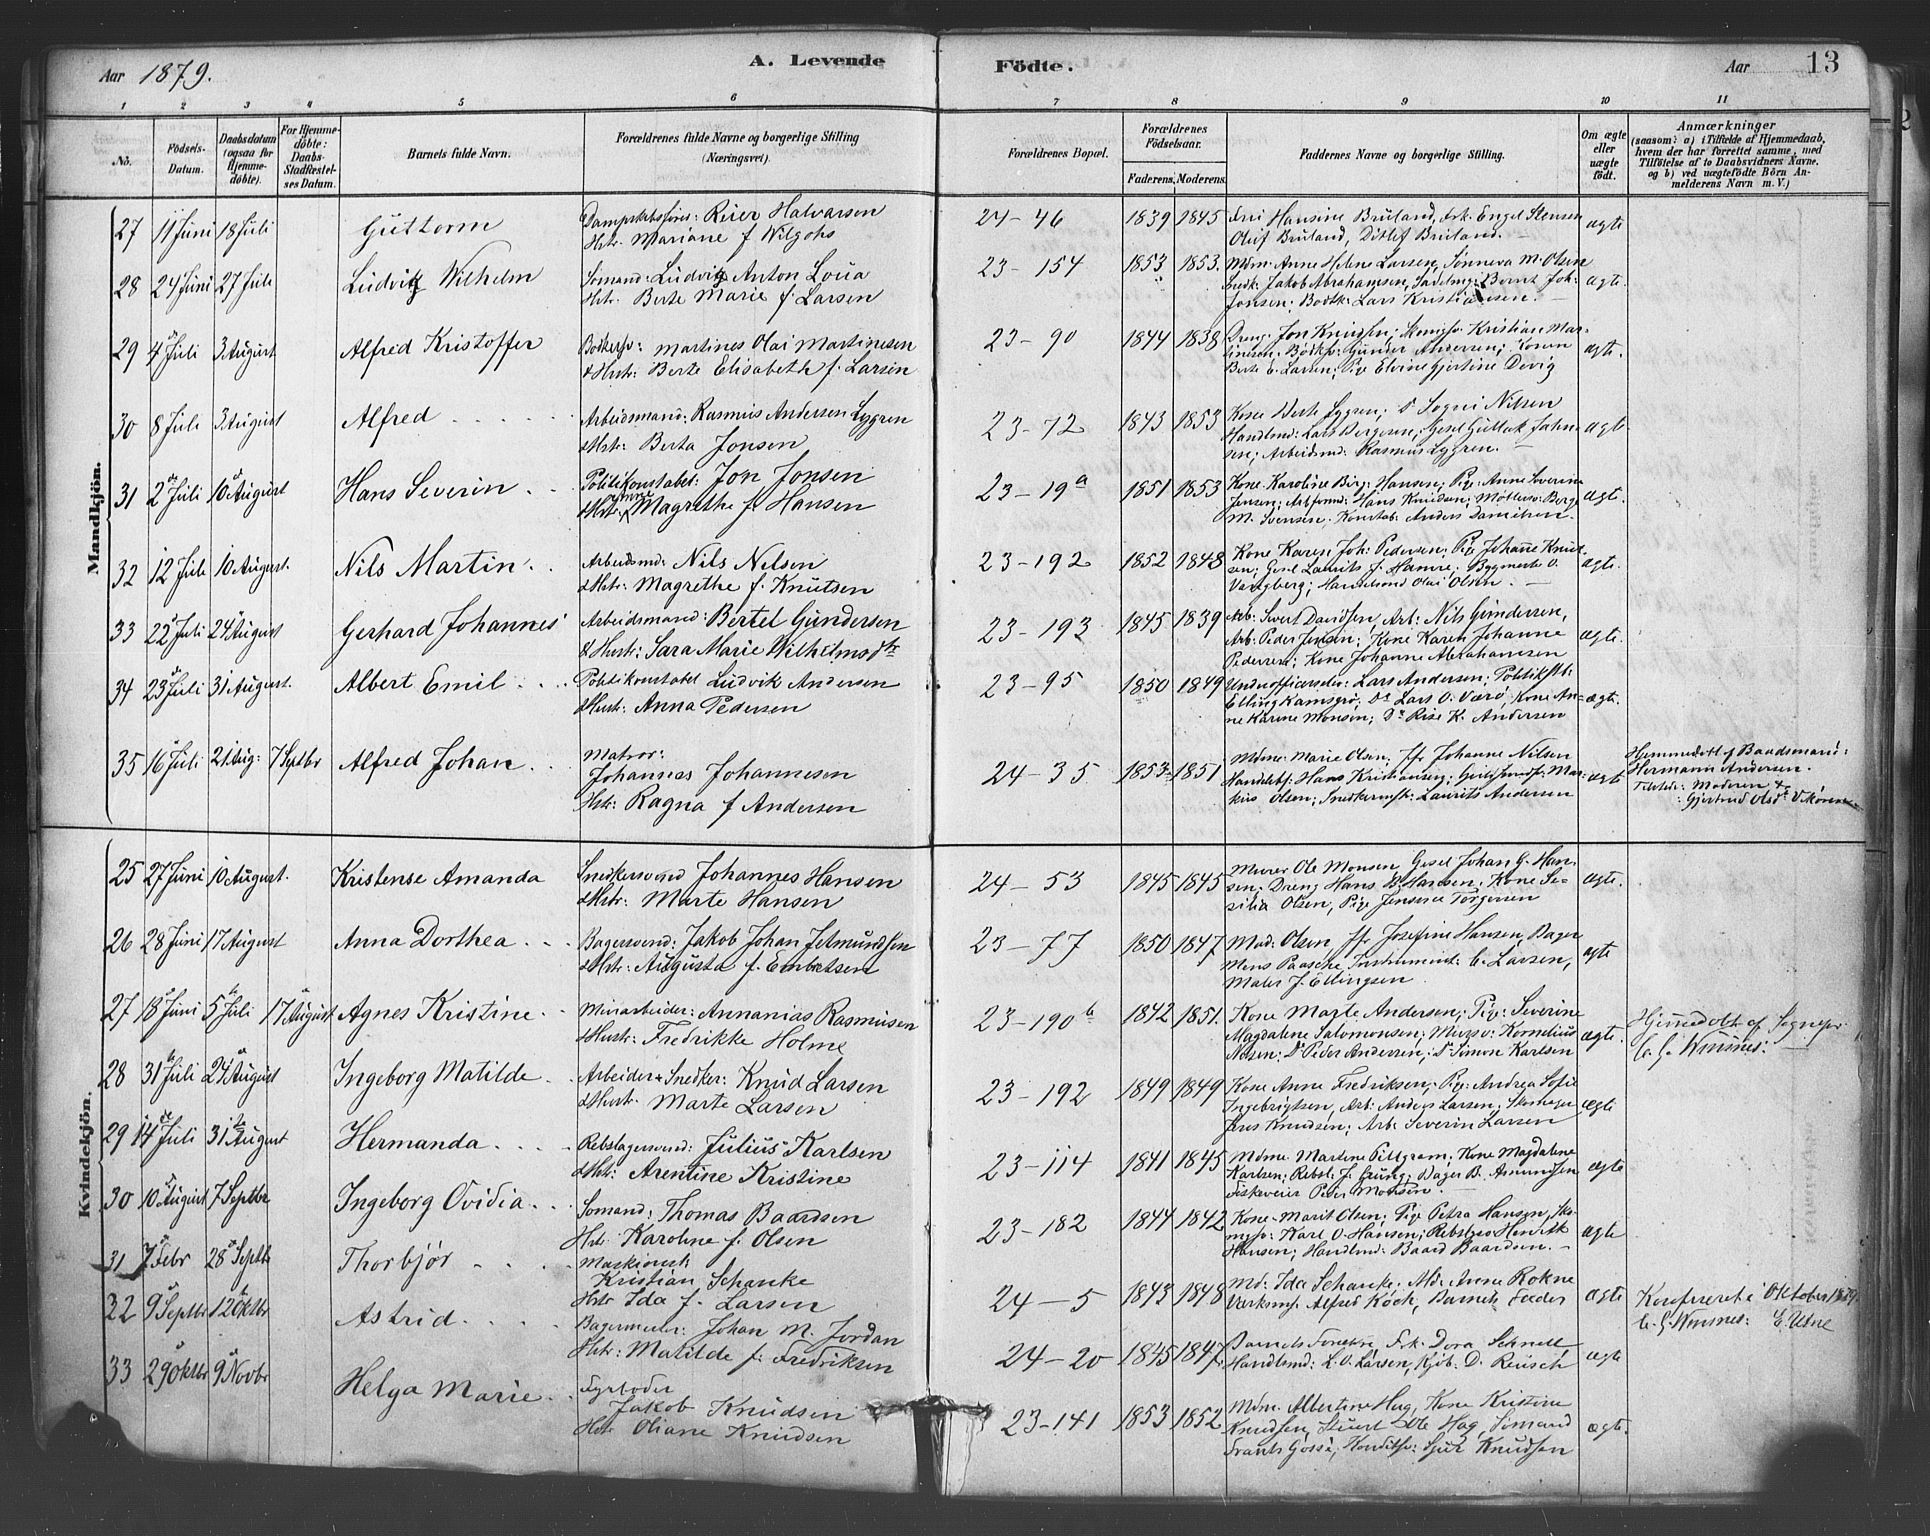 Aar 1879.
A. Levende Födte.
Aar
13
1 2 3 4 5 6 7 8 9 10 11
No.
Födsels-Datum.
Daabsdatum (ogsaa for Hjemmedöbte).
For Hjemmedöbte: Daabs-Stadfæstelses Datum.
Barnets fulde Navn.
Forældrenes fulde Navne og borgerlige Stilling (Næringsvei).
Forældrenes Bopæl.
Forældrenes Födselsaar.
Faderens. Moderens.
Faddernes Navne og borgerlige Stilling.
Om ægte eller uægte födt.
Anmærkninger
(saasom: a) i Tilfælde af Hjemmedaab, hvem der har forrettet samme, med Tilföielse af to Daabsvidners Navne, og b) ved uægtefödte Börn Anmelderens Navn m. V.)
Mandkjön.
27 11 Juni 18 Juli Guttorm
Reier Halvarsen
Hstr. Mariane f. Wilgohs
24-46 1839 1845
Hansine Bruland, Frk. Engel Stensen
Oluf Bruland, Ditlef Bruland.
ægte
28 24 Juni 27 Juli Ludvig Wilhelm
Sømand: Ludvig Anton Loua
Hstr. Berte Marie f. Larsen
23-154 1853 1853.
Mdm. Anne Helene Larsen, Sønneva M. Olsen
Snedk: Jakob Abrahamsen, Sadelmg: Bernt Joh-
Jonsen: Bødk: Lars Kristiansen.
ægte.
29 4 Juli 3 August Alfred Kristoffer
Bødkersv: Martines Olai Martinesen
& Hstr: Berte Elisabeth f. Larsen
23-90 1844 1838
Dreng: Jon Knudsen; Kristian Mar-
tinesen. Bødksv: Gunder Andersen; Konen
Berte E. Larsen; Pige Elvine Gjertine Devig
ægte.
30 8 Juli 3 August Alfred
Arbeidsmand: Rasmus Andersen Lygren
& Hstr: Berta Jonsen
23-72 1843 1853
Kone Berte Lygren; Do Sogni Nilsen
Handlmd: Lars Bergesen; Gesel Guttak Jahn-
sen; Arbeidsmd: Rasmus Lygren.
ægte
31 2 Juli 10 August Hans Severin
Politikonstabel: Jon Jonsen
& Hstr: Magrethe f. Hansen
23-19a 1851 1853
Kone Karoline Birg: Hansen; Pige: Anne Severine
Jensen; Hans Knudsen; Møllersv: Berge
M. Svensen. Konstab: Anders Danielsen.
ægte.
32 12 Juli 10 August. Nils Martin
Arbeidsmd: Nils Nilsen
& Hstr: Magrethe f. Knutsen
23-192 1852 1848
Kone Karen Joh: Pedersen; Pige Johanne Knut-
sen; Gesel Laurits f. Hamre; Bygmester O.
Vangberg; Handelsmd Olai Olsen.
ægte.
33 22 Juli 24 August Gerhard Johannes
Arbeidsmand: Bertel Gundersen
& Hustr: Sara Marie Wilhelmsdtr
23-193 1845 1839
Arb: Sivert Davidsen, Arb: Nils Gundersen,
Arb: Peder Jensen; Kone Karen Johanne
Pedersen; Kone Johanne Abrahamsen
ægte.
34 23 Juli 31 August. Albert Emil
Politikonstabel Ludvik Andersen
& Hustr: Anna Pedersen
23-95 1850 1849
Underofficerselev: Lars Andersen; Politikstb:
Elling Kamsgrø; Do Lars O. Værø, Kone An-
ne Karine Monsen; Do Rise K. Andersen
ægte.
35 16 Juli 21 Aug: 7 Septbr Alfred Johan
Matros:
Johannes Johannesen
Hstr: Ragna f. Andersen
24-35 1853 1851
Mdme. Marie Olsen; Jfr Johanne Nilsen
Handelsf: Hans Kristiansen; Guldsmedsv: Mar-
kus Olsen; Snedkermstr: Laurits Andersen
ægte
Hjemmedøbt af Baadsmand:
Hermann Andersen.
Tilstede: Moderen &
Gjertrud
Kvindekjön.
25 27 Juni 10 August. Kristense Amanda
Snedkersvend Johannes Hansen
& Hstr: Marte Hansen
24-53 1845 1845
Murer Ole Monsen Gesel Johan G. Han-
sen; Dreng Hans B. Hansen; Kone Se-
silia Olsen, Pige Jensine Torgersen
ægte.
26 28 Juni 17 August Anna Dorthea
Bagersvend: Jakob Johan Jelmundsen
& Hstr: Augusta f. Embretsen
23-77 1850 1847
Mad: Olsen, Jfr Josefine Hansen, Bager
Mons Paasche, Instrument: C. Larsen,
Maler J. Ellingsen
ægte
27 18 Juni 5 Juli 17 August Agnes Kristine
Minarbeider: Annanias Rasmussen
& Hustr: Fredrikke Holme
23-190b 1842 1851.
Kone Marte Andersen; Pige: Severine
Magdalene Salomonsen; Mursv: Kornelius
Nesen; Do Peder Andersen; Do Simon Karlsen
ægte.
Hjemmedøbt af Sognepr:
C. G. Winsnes:
28 31 Juli 24 August Ingeborg Matilde
Arbeider & Snedker: Knud Larsen
& Hustr: Marte Larsen
23-192 1849 1849
Kone Anne Fredriksen; Pige: Andrea Sofie
Ingebrigtsen, Arb: Anders Larsen; Skomager
Jens Knudsen; Arb: Severin Larsen
ægte
29 14 Juli 31 August Hermanda
Rebslagersvend: Julius Karlsen
& Hstr: Arentine Kristine
23-114 1841 1845
Mdme. Martine Pillgram; Kone Magdalene
Karlsen; Rebsl: J. Grung; Bager B. Amundsen
Fiskeveier Peder Monsen
ægte
30 10 August 7 Septbr Ingeborg Ovidia
Sømand: Thomas Baardsen
Hstr: Karoline f. Olsen
23-182 1844 1842
Kone Marit Olsen; Pige Petra Hansen, Sko-
mgsv: Karl O. Hansen; Rebslgsv Henrik
Hansen; Handlmd: Baard Baardsen.
ægte
31 7 Febr 28 Septb Thorbjør
Maskionstr:
Kristian Schanke
Hstr Ida f. Larsen
24-5 1843 1848
Md: Ida Schanke. Md: Anne Rokne
Værksmr Alfred Kock, Barnets Fader
ægte
Konfirmerte Oktober 1879
C. G. Winsnes:
32 9 Septbr 12 Oktbr Astrid
Bagermester: Johan M. Jordan
Hstr: Matilde f: Fredriksen
24-20 1845 1847.
Barnets Forældre, Frk. Dora Schnell
Handlsmd: K. O. Larsen, Kjøb: D. Reusch
ægte
33 29 Oktbr 9 Novbr Helga Marie
Fyrbøder
Jakob Knudsen
Hstr Oliane Knudsen
23-141 1853 1852
Mdm: Albertine Hag, Kone Kristine
Knudsen, Stuert Ole Hag, Sømand
Frants Gosse, Konditsv: Sjur Knudsen
ægte.